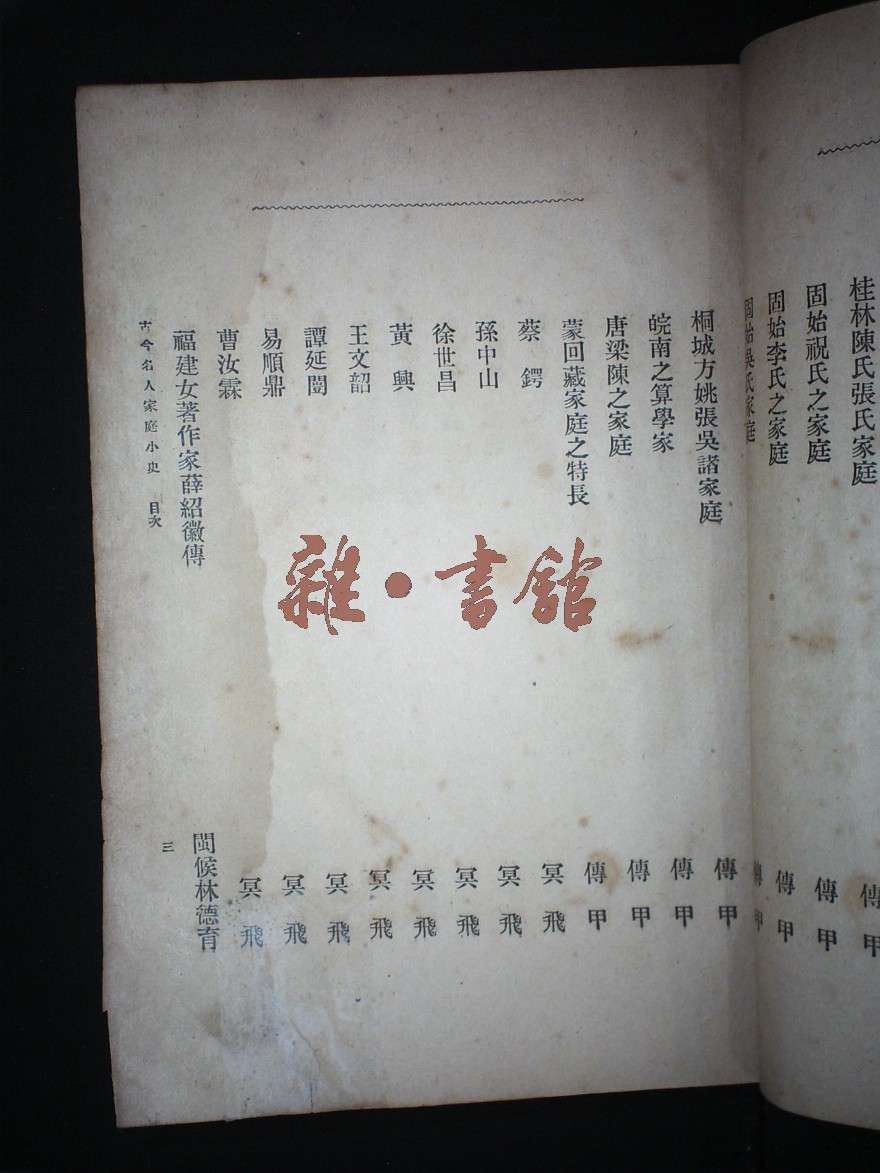 桂林陳氏張氏家庭 傳甲
固始祝氏之家庭 傳甲
固始李氏之家庭 傳甲
固始吳氏家庭 傳甲
桐城方姚張吳諸家庭 傳甲
皖南之算學家 傳甲
唐梁陳之家庭 傳甲
蒙回藏家庭之特長 傳甲
蔡鍔 冥飛
孫中山 冥飛
徐世昌 冥飛
黃興 冥飛
王文韶 冥飛
譚延闓 冥飛
易順鼎 冥飛
曹汝霖 冥飛
福建女著作家薛紹徽傳 閩候林德育
古今名人家庭小史 目次 三
雜·書館